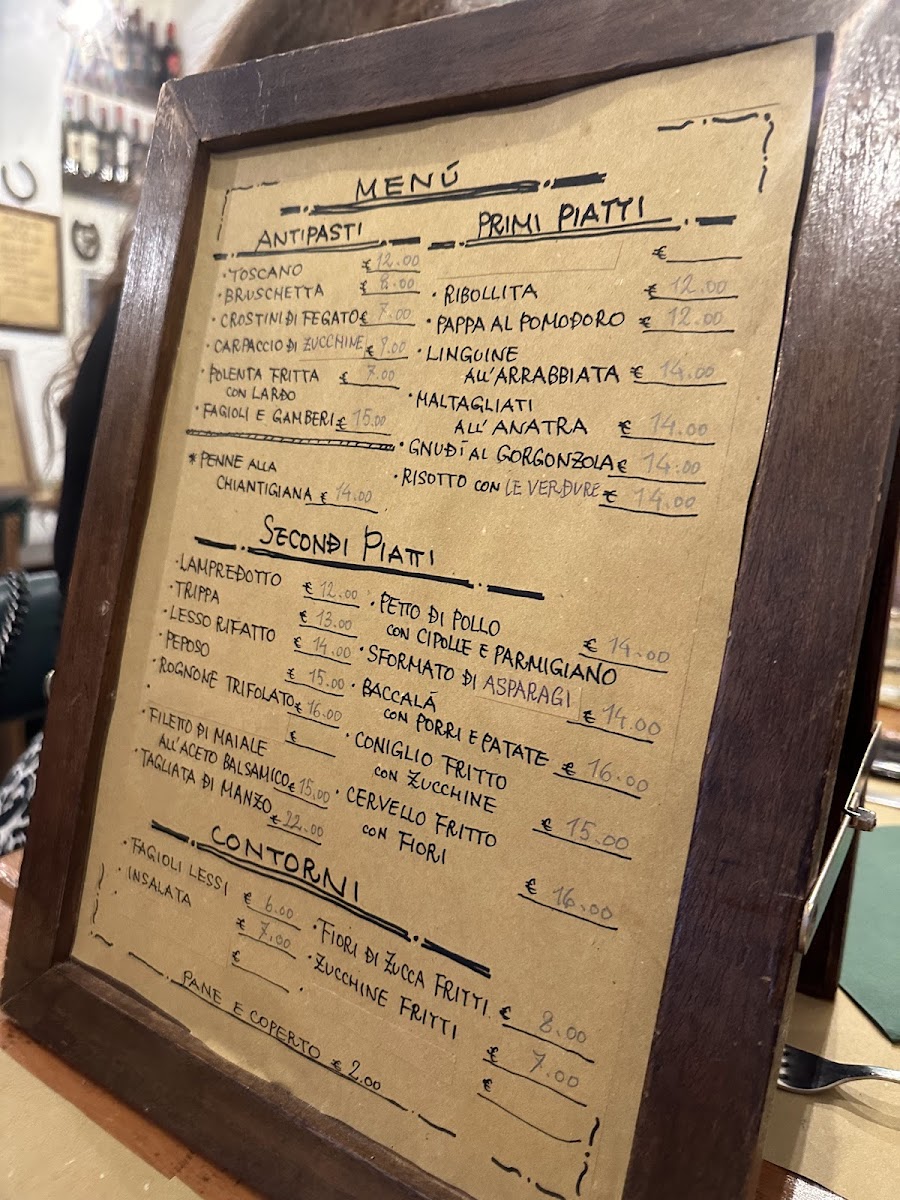 MENÚ
ANTIPASTI
• TOSCANO € 12.00
• BRUSCHETTA € 8.00
• CROSTINI DI FEGATO € 7.00
• CARPACCIO DI ZUCCHINE € 9.00
• POLENTA FRITTA € 7.00
CON LARDO
• FAGIOLI E GAMBERI € 15.00
* PENNE ALLA
CHIANTIGIANA € 14.00
PRIMI PIATTI
€
• RIBOLLITA € 12.00
• PAPPA AL POMODORO € 12.00
• LINGUINE
ALL'ARRABBIATA € 14.00
• MALTAGLIATI
ALL'ANATRA € 14.00
• GNUDI AL GORGONZOLA € 14.00
• RISOTTO CON LE VERDURE € 14.00
SECONDI PIATTI
• LAMPREDOTTO € 12.00
• TRIPPA € 13.00
• LESSO RIFATTO € 14.00
• PEPOSO € 15.00
• ROGNONE TRIFOLATO € 16.00
• €
• FILETTO DI MAIALE
ALL'ACETO BALSAMICO € 15.00
• TAGLIATA DI MANZO € 22.00
• PETTO DI POLLO
CON CIPOLLE E PARMIGIANO € 14.00
• SFORMATO DI ASPARAGI € 14.00
• BACCALÁ
CON PORRI E PATATE € 16.00
• CONIGLIO FRITTO
CON ZUCCHINE € 15.00
• CERVELLO FRITTO
CON FIORI € 16.00
CONTORNI
• FAGIOLI LESSI € 6.00
• INSALATA € 7.00
€
• FIORI DI ZUCCA FRITTI € 8.00
• ZUCCHINE FRITTI € 7.00
• €
PANE E COPERTO € 2.00